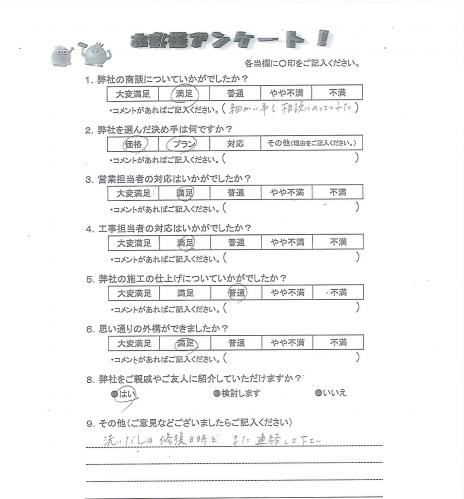 お客様アンケート！
各当欄に○印をご記入ください。
1. 弊社の商談についていかがでしたか？
大変満足 満足 普通 やや不満 不満
・コメントがあればご記入ください。( 細かい事も相談にのってくれた )
2. 弊社を選んだ決め手は何ですか？
価格 プラン 対応 その他(理由をご記入ください。)
・コメントがあればご記入ください。( )
3. 営業担当者の対応はいかがでしたか？
大変満足 満足 普通 やや不満 不満
・コメントがあればご記入ください。( )
4. 工事担当者の対応はいかがでしたか？
大変満足 満足 普通 やや不満 不満
・コメントがあればご記入ください。( )
5. 弊社の施工の仕上げについていかがでしたか？
大変満足 満足 普通 やや不満 不満
・コメントがあればご記入ください。( )
6. 思い通りの外構ができましたか？
大変満足 満足 普通 やや不満 不満
・コメントがあればご記入ください。( )
8. 弊社をご親戚やご友人に紹介していただけますか？
●はい ●検討します ●いいえ
9. その他(ご意見などございましたらご記入ください)
洗いだしの修復日時をまた連絡して下さい